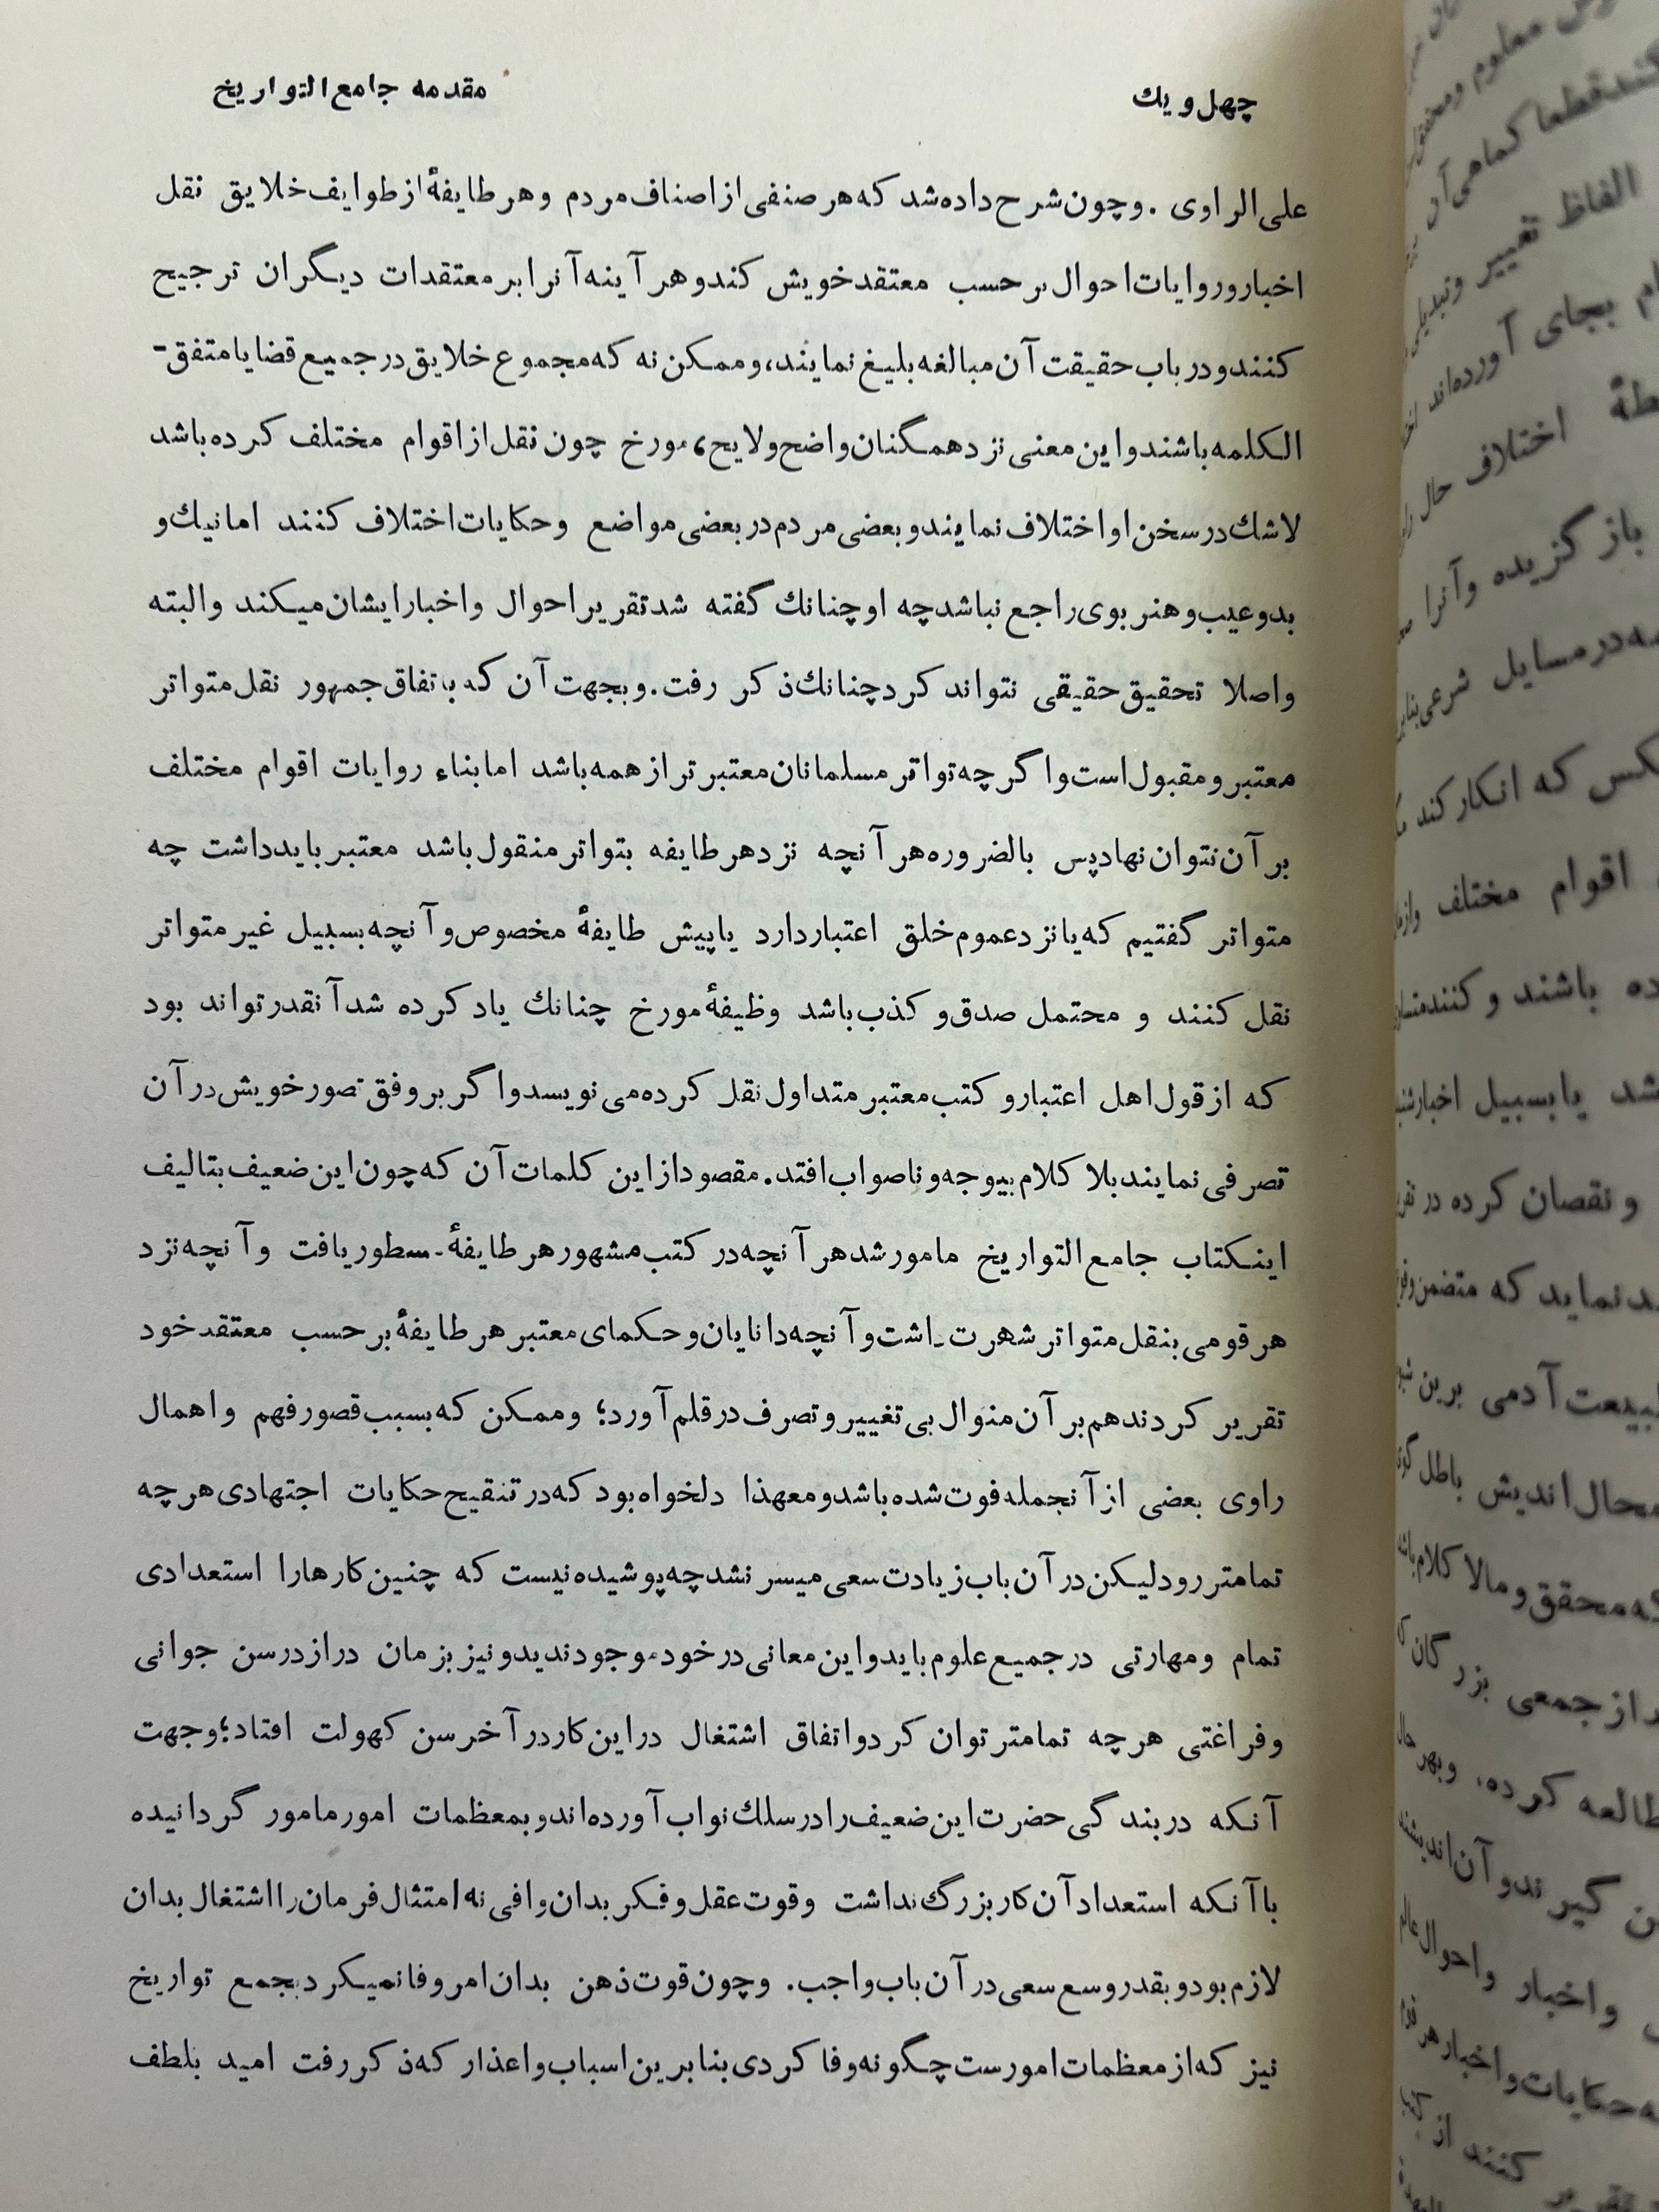 چهل و یك
مقدمه جامع التواریخ
علی الراوی . و چون شرح داده شد که هر صنفی از اصناف مردم و هر طایفهٔ از طوایف خلایق نقل
اخبار و روایات احوال بر حسب معتقد خویش کند و هر آینه آنرا بر معتقدات دیگران ترجیح
کنند و در باب حقیقت آن مبالغه بلیغ نمایند، و ممکن نه که مجموع خلایق در جمیع قضایا متفق-
الکلمه باشند و این معنی نزد همگنان واضح و لایح، مورخ چون نقل از اقوام مختلف کرده باشد
لاشك در سخن او اختلاف نمایند و بعضی مردم در بعضی مواضع و حکایات اختلاف کنند اما نیك و
بد و عیب و هنر بوی راجع نباشد چه او چنانك گفته شد تقریر احوال و اخبار ایشان میکند و البته
و اصلا تحقیق حقیقی نتواند کرد چنانك ذکر رفت. و بجهت آن که باتفاق جمهور نقل متواتر
معتبر و مقبول است و اگر چه تواتر مسلمانان معتبر تر از همه باشد اما بناء روایات اقوام مختلف
بر آن نتوان نهاد پس بالضروره هر آنچه نزد هر طایفه بتواتر منقول باشد معتبر باید داشت چه
متواتر گفتیم که یا نزد عموم خلق اعتبار دارد یا پیش طایفهٔ مخصوص و آنچه بسبیل غیر متواتر
نقل کنند و محتمل صدق و کذب باشد وظیفهٔ مورخ چنانك یاد کرده شد آنقدر تواند بود
که از قول اهل اعتبار و کتب معتبر متداول نقل کرده می نویسد و اگر بر وفق تصور خویش در آن
تصرفی نمایند بلا کلام بیوجه و ناصواب افتد. مقصود از این کلمات آن که چون این ضعیف بتالیف
اینکتاب جامع التواریخ مامور شد هر آنچه در کتب مشهور هر طایفهٔ سطور یافت و آنچه نزد
هر قومی بنقل متواتر شهرت داشت و آنچه دانایان و حکمای معتبر هر طایفهٔ بر حسب معتقد خود
تقریر کردند هم بر آن منوال بی تغییر و تصرف در قلم آورد؛ و ممکن که بسبب قصور فهم و اهمال
راوی بعضی از آنجمله فوت شده باشد و معهذا دلخواه بود که در تنقیح حکایات اجتهادی هر چه
تمامتر رود لیکن در آن باب زیادت سعی میسر نشد چه پوشیده نیست که چنین کارها را استعدادی
تمام و مهارتی در جمیع علوم باید و این معانی در خود موجود ندید و نیز بزمان دراز در سن جوانی
و فراغتی هر چه تمامتر توان کرد و اتفاق اشتغال در این کار در آخر سن کهولت افتاد؛ و جهت
آنکه در بندگی حضرت این ضعیف را در سلك نواب آورده اند و بمعظمات امور مامور گردانیده
با آنکه استعداد آن کار بزرگ نداشت و قوت عقل و فکر بدان وافی نه امتثال فرمان را اشتغال بدان
لازم بود و بقدر وسع سعی در آن باب واجب. و چون قوت ذهن بدان امر وفا نمیکرد بجمع تواریخ
نیز که از معظمات امورست چگونه وفا کردی بنابرین اسباب و اعذار که ذکر رفت امید بلطف